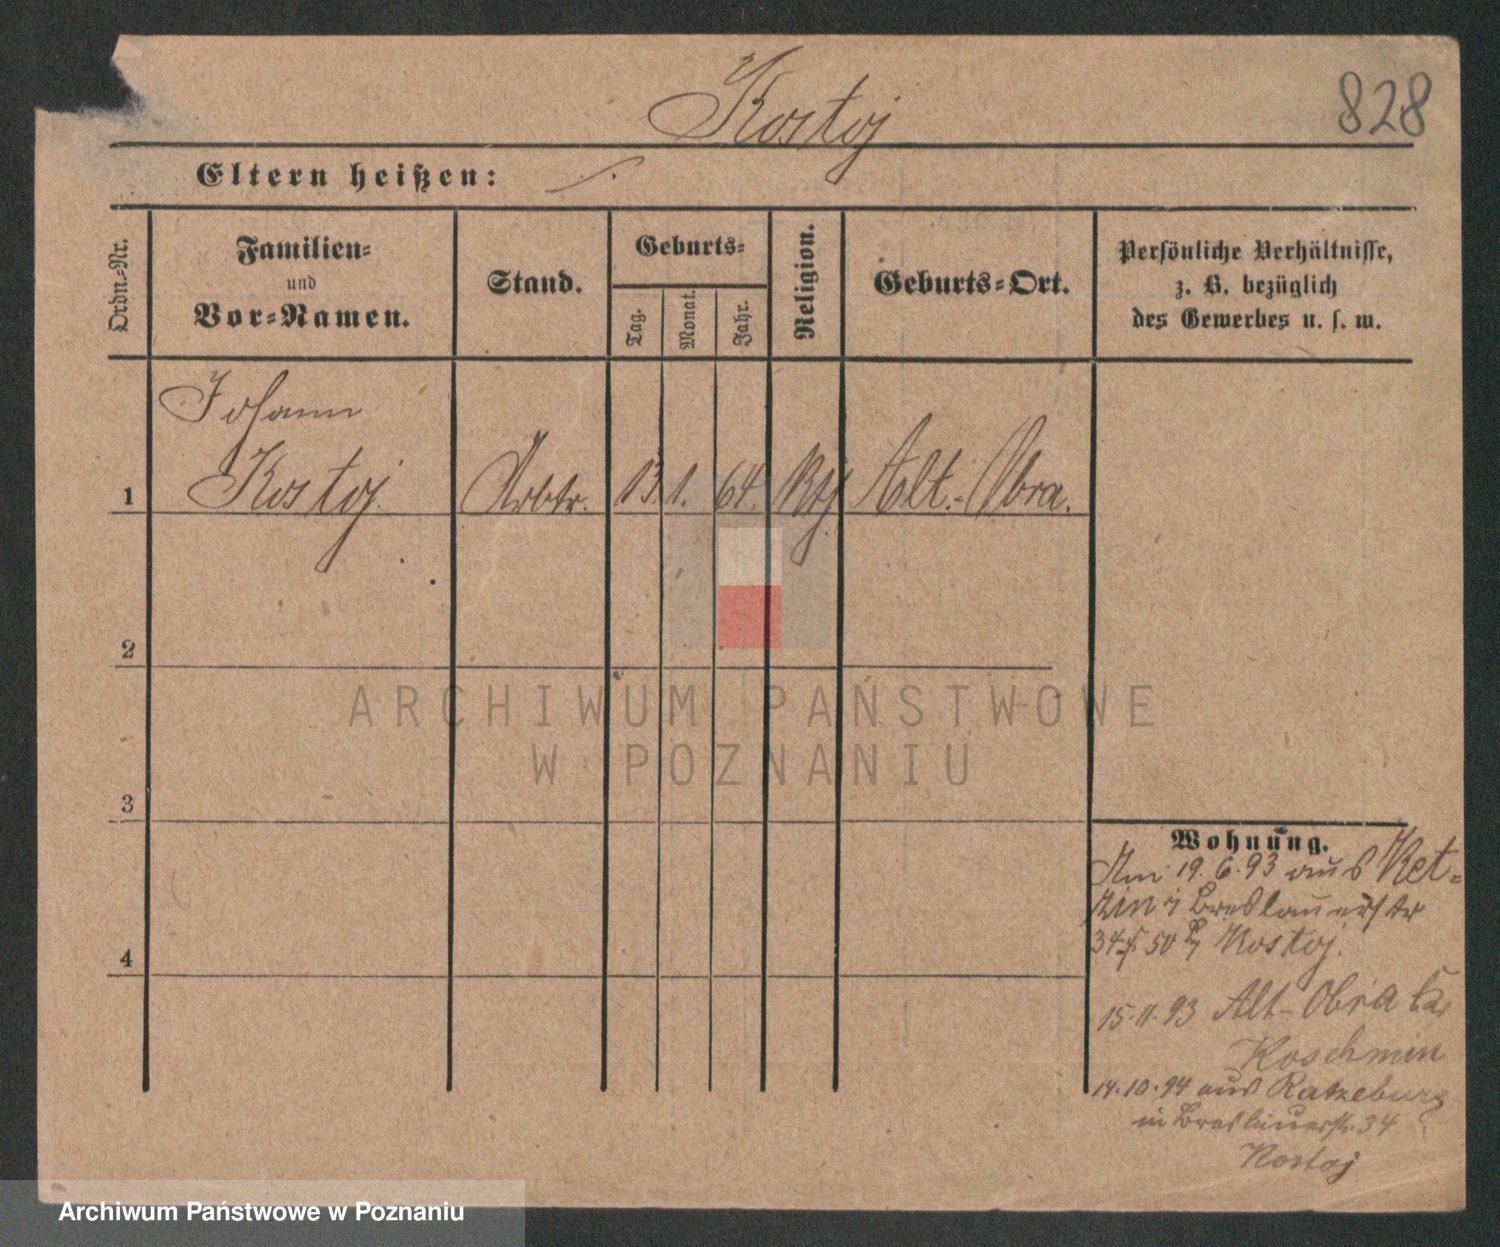 Kostoj
828
Eltern heißen:
Ordn.-Nr.
Familien-
und
Vor-Namen.
Stand.
Geburts-
Tag.
Monat.
Jahr.
Religion.
Geburts-Ort.
Persönliche Verhältnisse,
z. B. bezüglich
des Gewerbes u. s. w.
Johann
1 Kostoj. Arbtr. 13. 1. 64. Alt-Obra.
2
3
4
ARCHIWUM PAŃSTWOWE
W POZNANIU
Wohnung.
Am 19.6.93 aus Ket-
zin Breslauerstr
34 50 Kostoj.
15.11.93 Alt-Obra
Koschmin
14.10.94 aus Ratzeburg
in Breslauerstr. 34
Kostoj
Archiwum Państwowe w Poznaniu